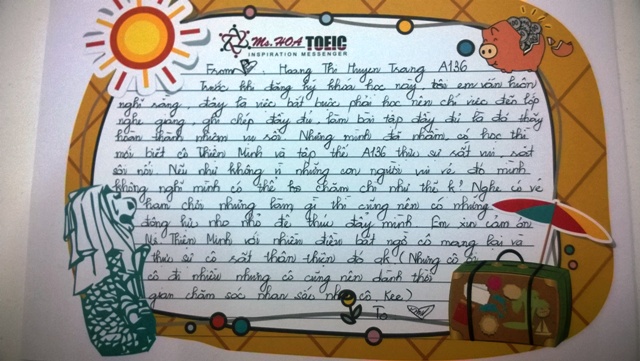 Ms.HOA TOEIC
INSPIRATION MESSENGER
From Hoang Thi Huyen Trang A136
Trước khi đăng ký khóa học này, em vẫn luôn
nghĩ rằng, đây là việc bắt buộc phải học nên chỉ việc đến lớp
nghe giảng, ghi chép đầy đủ, làm bài tập đầy đủ là đã thấy
hoàn thành nhiệm vụ rồi. Nhưng mình đã nhầm, có học thì
mới biết cô Thiên Minh và tập thể A136 thực sự rất vui, rất
sôi nổi. Nếu như không vì những con người vui vẻ đó mình
không nghĩ mình có thể học chăm chỉ như thế k! Nghe có vẻ
ham chơi nhưng làm gì thì cũng nên có những
động lực nho nhỏ để thúc đẩy mình. Em xin cảm ơn
Ms Thiên Minh với nhiều điều bất ngờ cô mang lại và
thực sự cô rất thân thiện đó ạk (Nhưng cô
có đi nhiều nhưng cô cũng nên dành thời
gian chăm sóc nhan sắc nha cô. Kee)
To